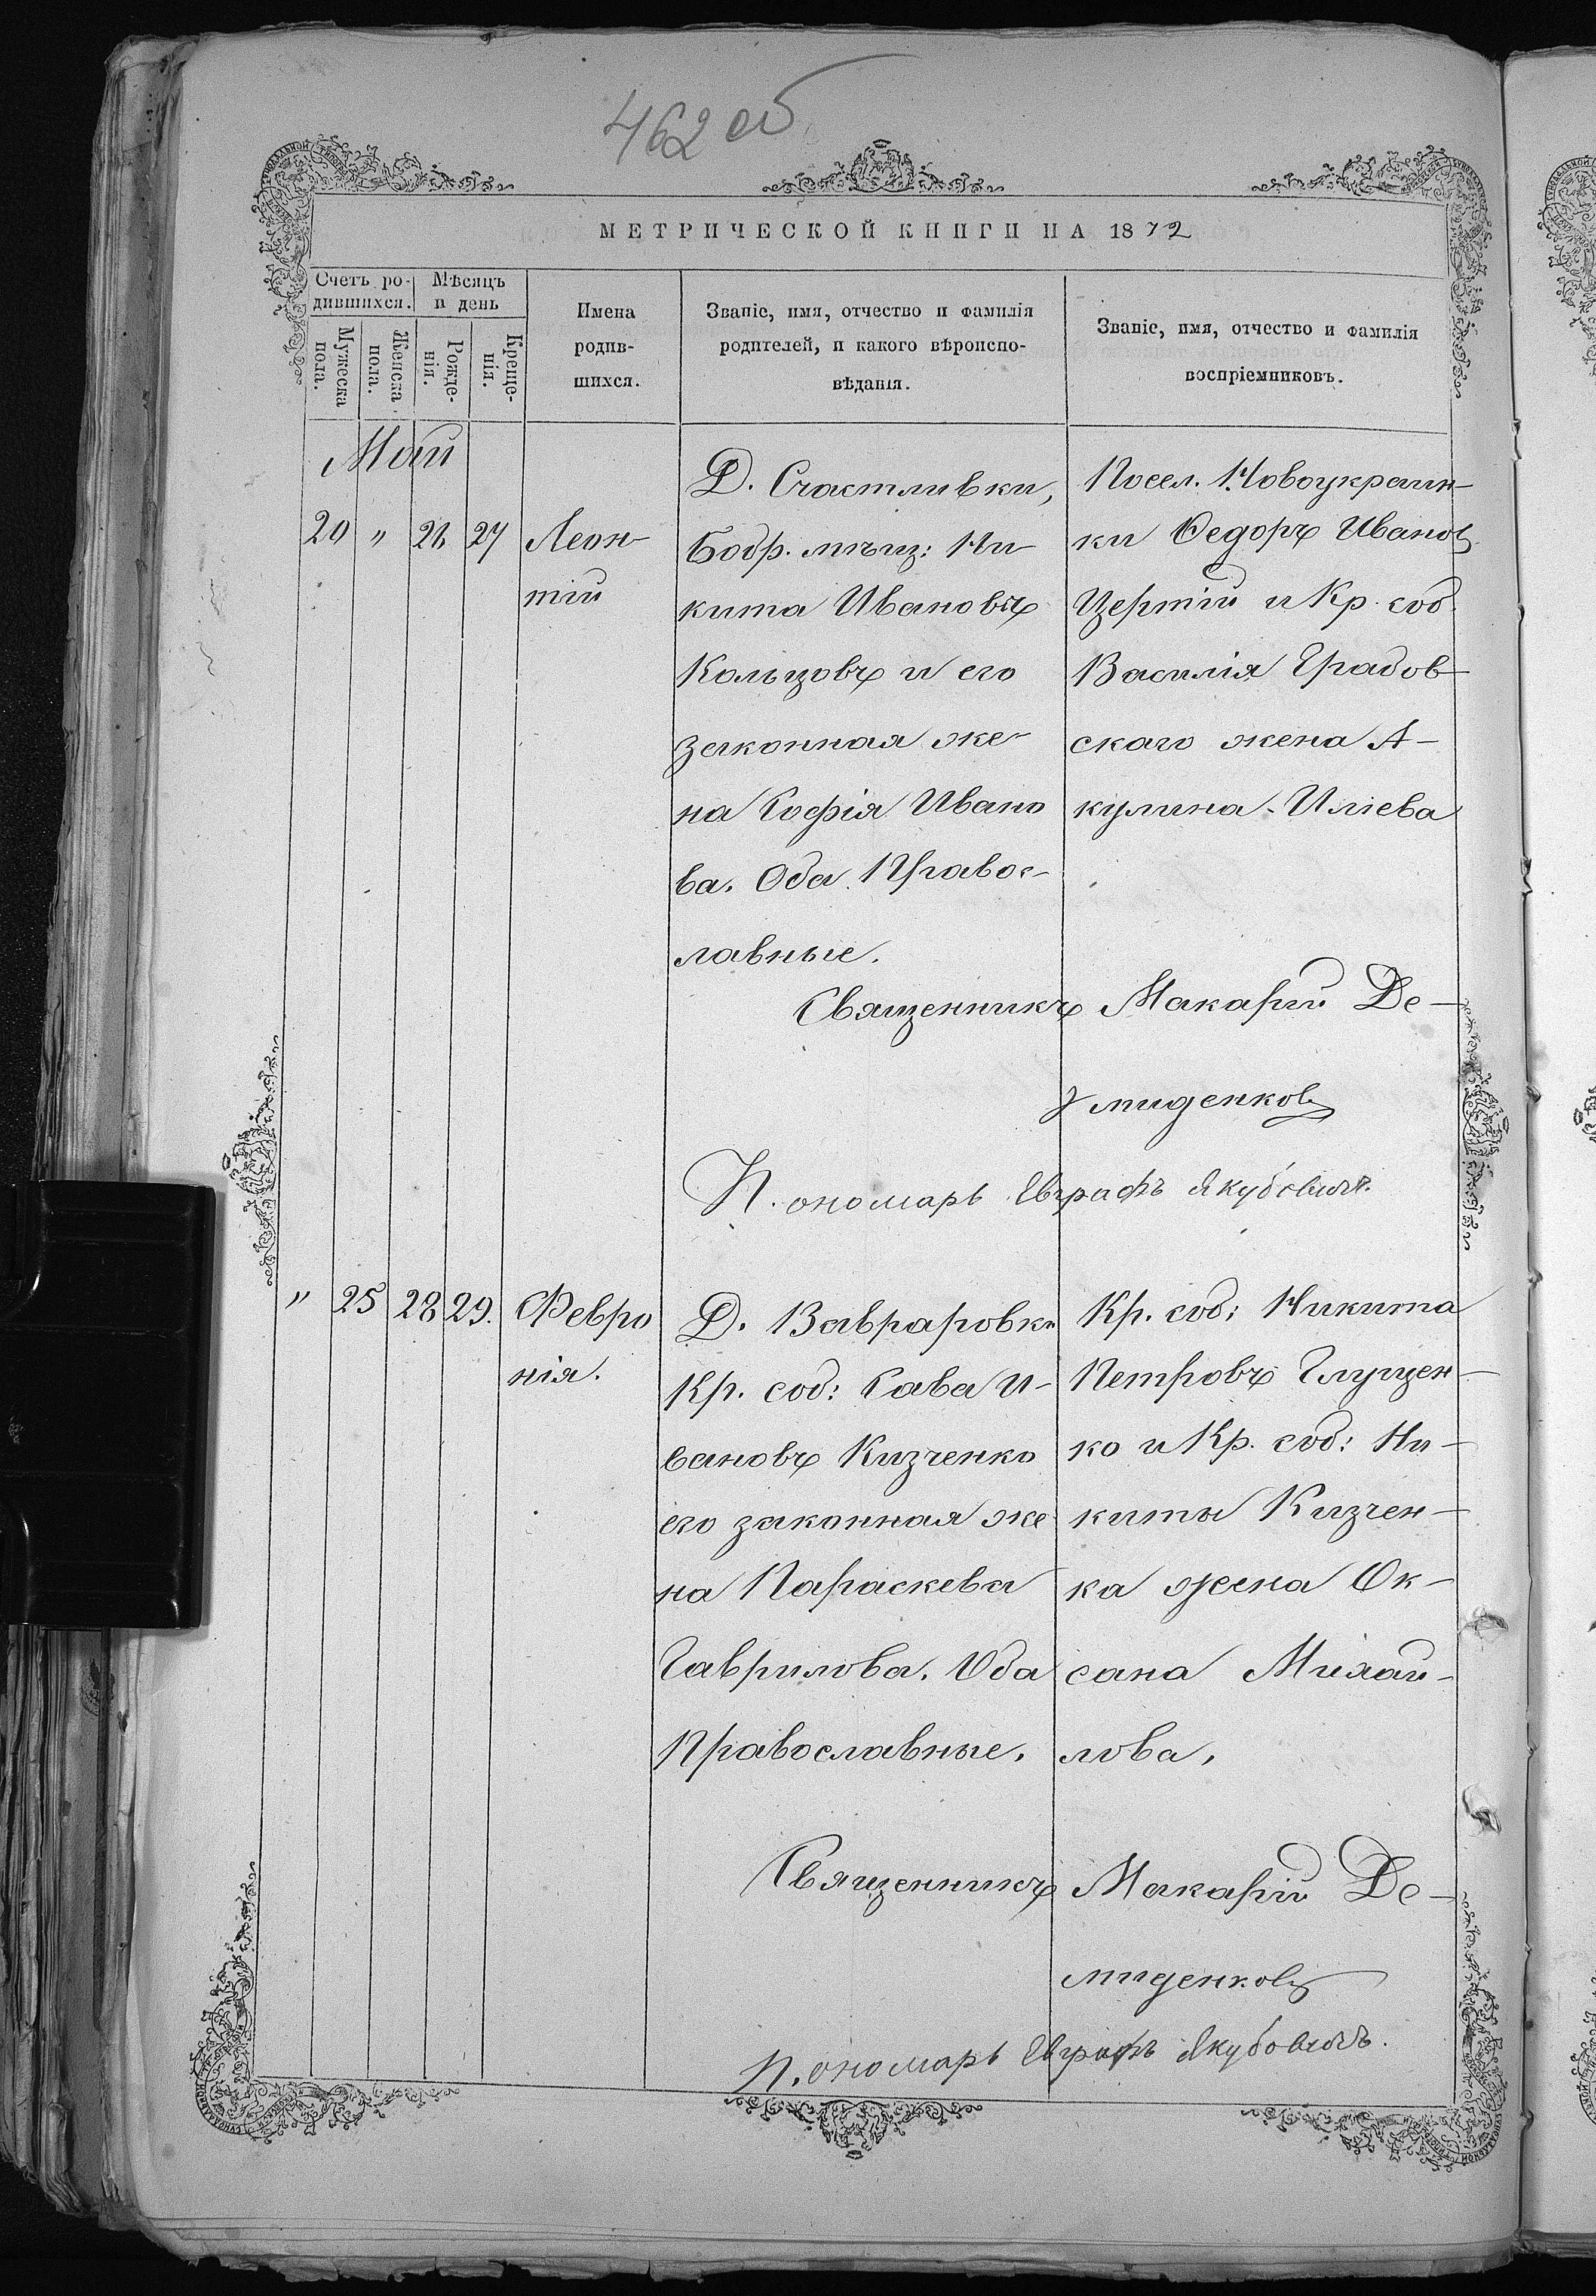 462 об
МЕТРИЧЕСКОЙ КНИГИ НА 1872
Счетъ ро-
дившихся.
Мѣсяцъ
и день
Мужеска
пола.
Женска
пола.
Рожде-
нія.
Креще-
нія.
Имена
родив-
шихся.
Званіе, имя, отчество и фамилія
родителей, и какого вѣроиспо-
вѣданія.
Званіе, имя, отчество и фамилія
воспріемниковъ.
Май
20 " 26 27
Леон-
тій
Д. Счастливки,
Бобр. мѣщ: Ни-
кита Ивановъ
Кольцовъ и его
законная же-
на Софія Ивано
ва. Оба Правос-
лавные.
Посел. Новоукраин-
ки Ѳедоръ Иванов
и Кр. соб.
Василія Градов-
скаго жена А-
кулина Илиева
Священникъ Макарій Де-
миденков
Пономарь Евграфъ Якубовичъ.
" 25 28 29.
Февро
нія.
Д. Варваровки
Кр. соб: Сава И-
вановъ Кизченко
его законная же
на Параскева
Гаврилова. Оба
Православные.
Кр. соб: Никита
Петровъ Глущен-
ко и Кр. соб: Ни-
киты Кизчен-
ка жена Ок-
сана Михай-
лова.
Священникъ Макарій Де-
миденков
Пономарь Евграфъ Якубовичъ.